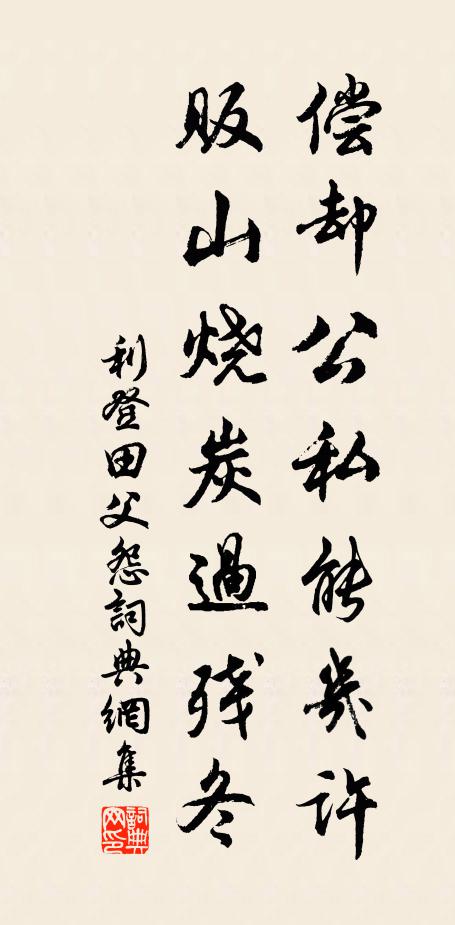 偿却公私能几许
贩山烧炭過残冬
利登田父怨詞典網集
詞典网印